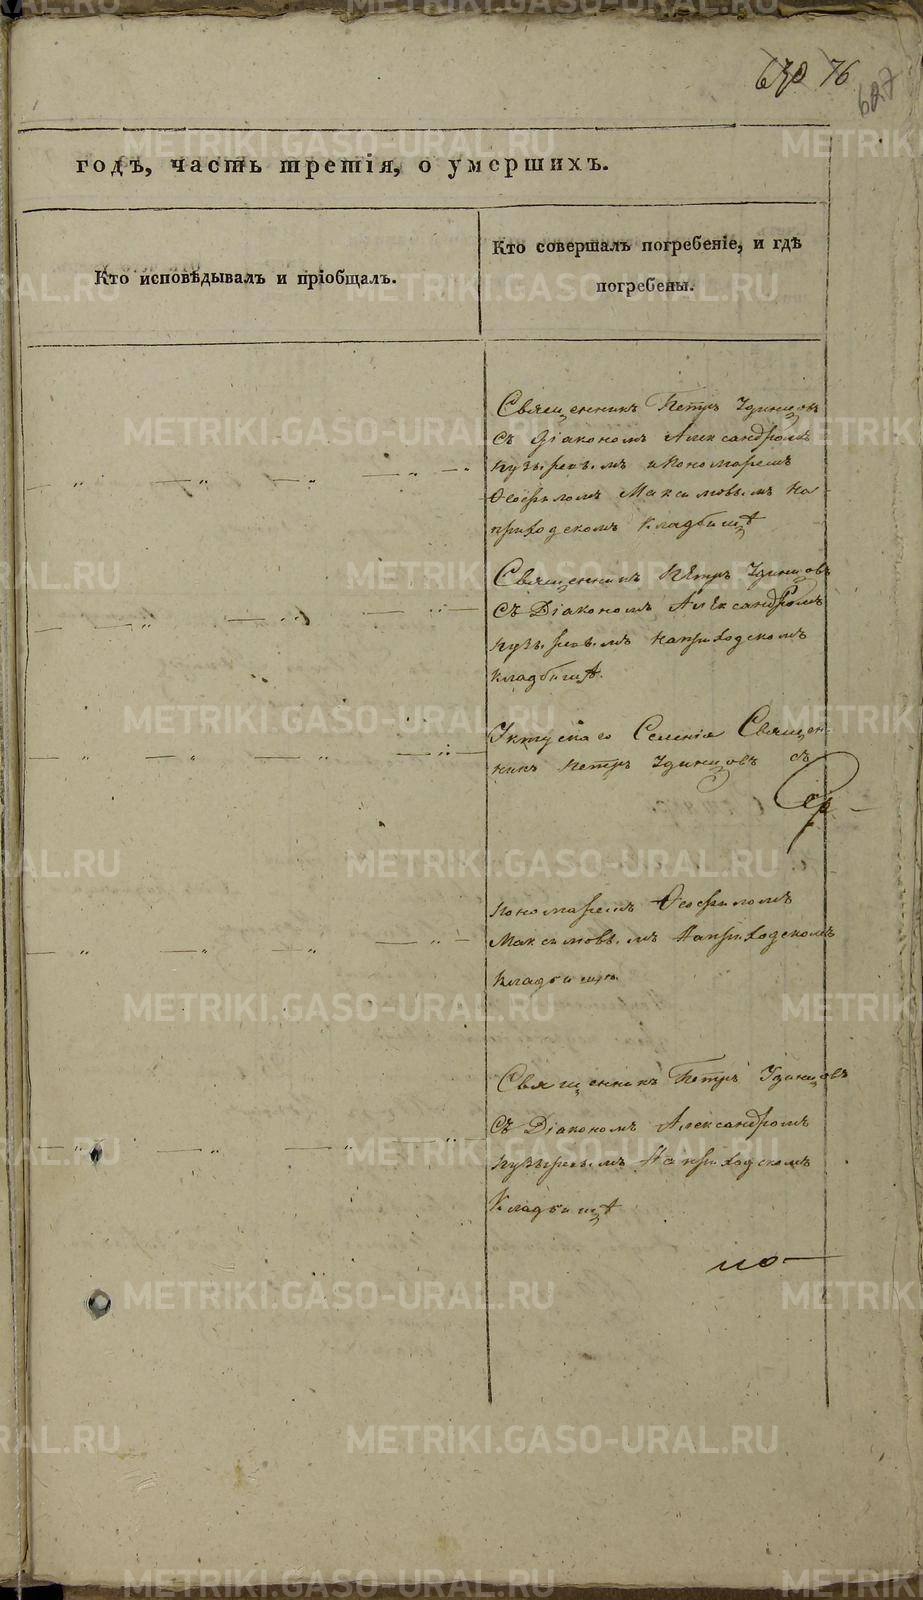 630 76
627
годъ, часть третія, о умершихъ.
Кто исповѣдывалъ и пріобщалъ.
Кто совершалъ погребеніе, и гдѣ
погребены.
Священникъ Петръ Удинцовъ
съ Діакономъ Александромъ
Пузыревымъ и Пономаремъ
Ѳеофиломъ Максимовымъ на
приходскомъ кладбищѣ
Священникъ Петръ Удинцовъ
Съ Діакономъ Александромъ
Пузыревымъ на приходскомъ
кладбищѣ.
Уктускаго Селенія Священ-
никъ Петръ Удинцовъ съ
Пономаремъ Ѳеофиломъ
Максимовымъ на приходскомъ
кладбищѣ
Священникъ Петръ Удинцовъ
Съ Діакономъ Александромъ
Пузыревымъ на приходскомъ
Кладбищѣ
METRIKI.GASO-URAL.RU